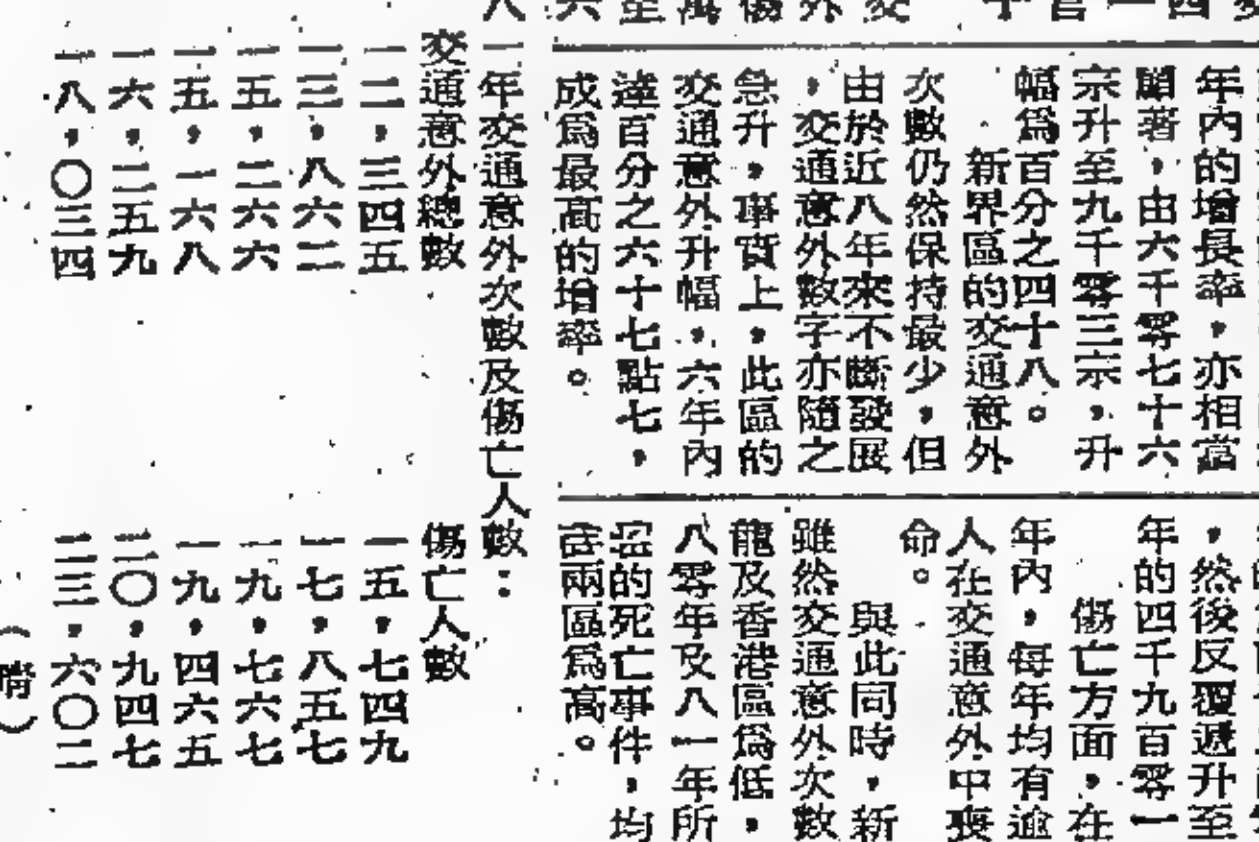 年內的增長率，亦相當
顯著，由六千零七十六
宗升至九千零三宗，升
幅爲百分之四十八。
新界區的交通意外
次數仍然保持最少，但
由於近八年來不斷發展
，交通意外數字亦隨之
急升，事實上，此區的
交通意外升幅，六年內
達百分之六十七點七，
成爲最高的增率。
，然後反覆遞升至
年的四千九百零一
傷亡方面，在
年內，每年均有逾
人在交通意外中喪
命。
與此同時，新
雖然交通意外次數
龍及香港區爲低，
八零年及八一年所
的死亡事件，均
兩區爲高。
一年交通意外次數及傷亡人數：
交通意外總數　傷亡人數
一二，三四五　一五，七四九
一三，八六二　一七，八五七
一五，二六六　一九，七六七
一五，一六八　一九，四六五
一六，二五九　二〇，九四七
一八，〇三四　二三，六〇二
（晴）